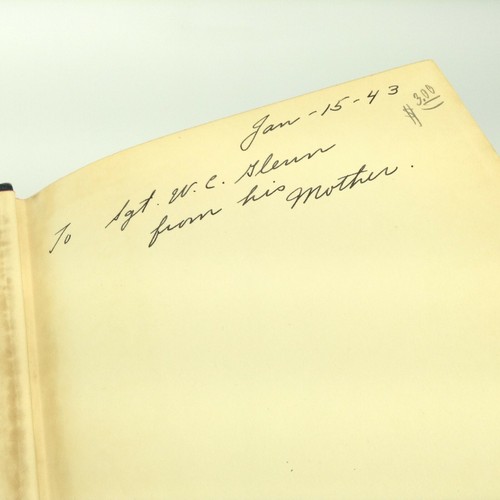 Jan-15-43
$3.00
To Sgt. W. C. Glenn
from his Mother.